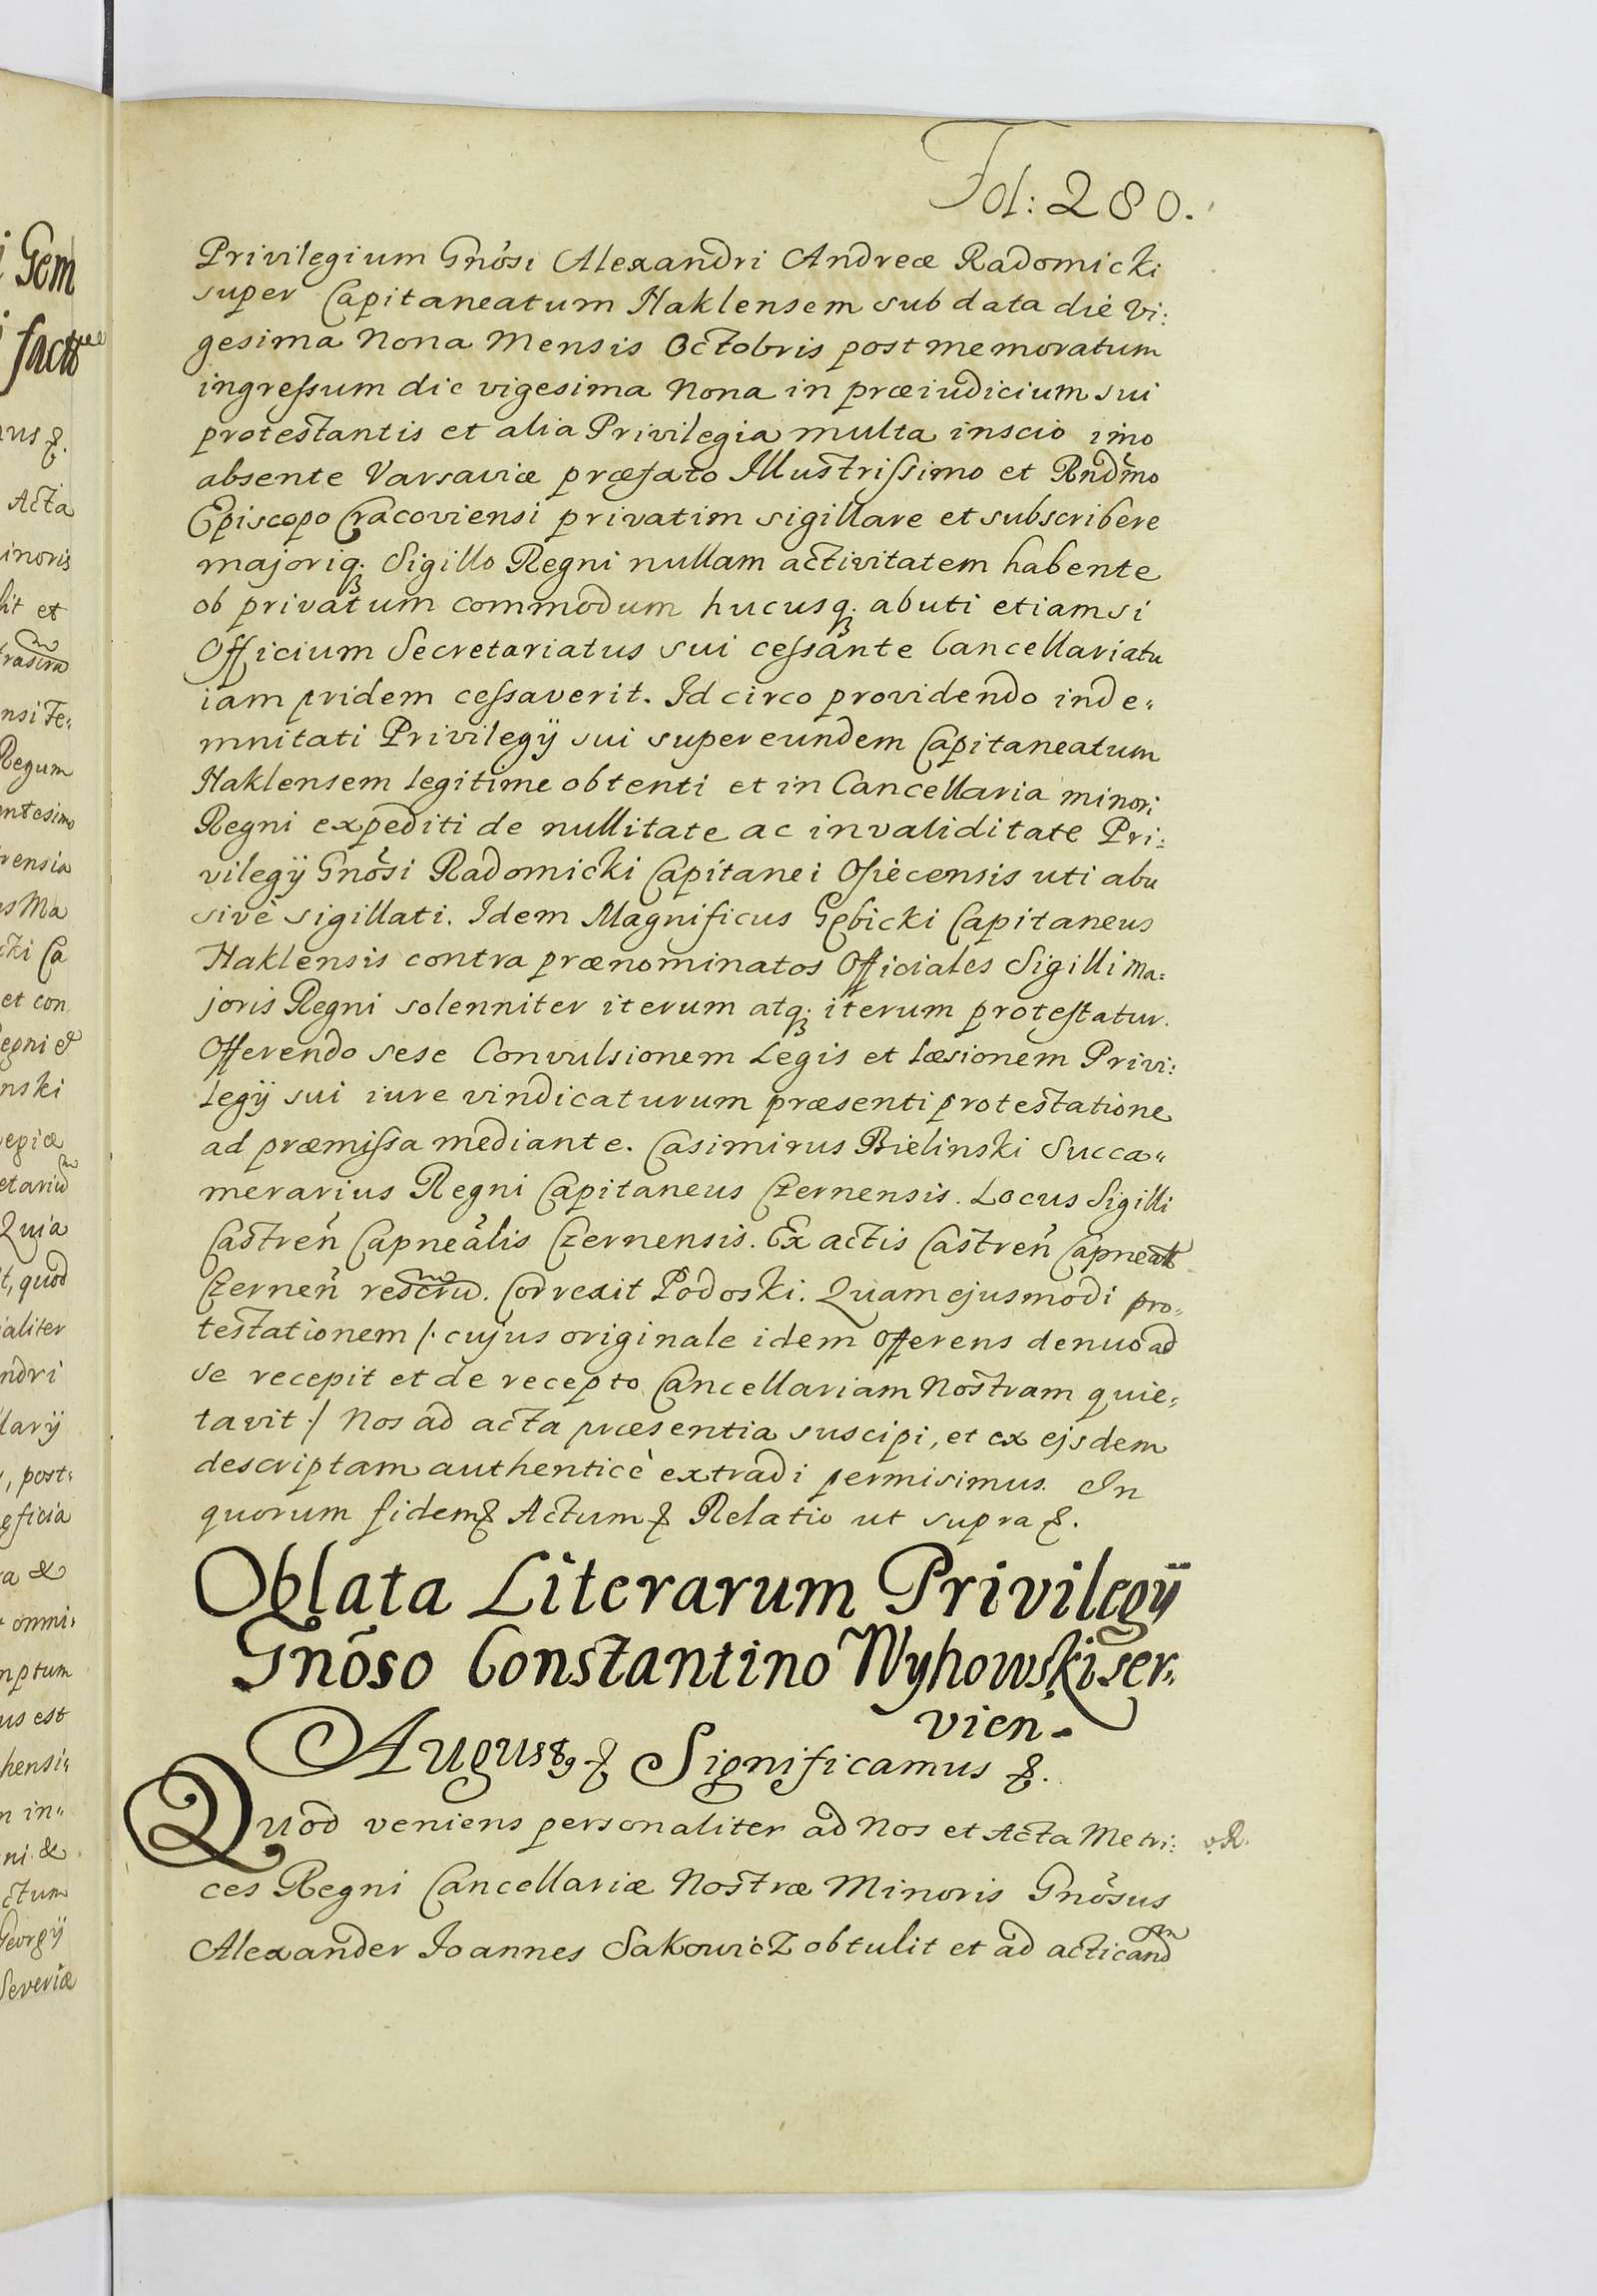 Fol: 280.
Privilegium Gnŏsi Alexandri Andreæ Radomicki
super Capitaneatum Naklensem sub data die vi:
gesima Nona Mensis Octobris post memoratum
ingressum die vigesima Nona in præiudicium sui
protestantis et alia Privilegia multa inscio imo
absente Varsaviæ præfato Illustrissimo et Rndmo
Episcopo Cracoviensi privatim sigillare et subscribere
majoriq; Sigillo Regni nullam activitatem habente
ob privatum commodum hucusq; abuti etiamsi
Officium Secretariatus sui cessante Cancellariatu
iam pridem cessaverit. Idcirco providendo inde„
mnitati Privilegÿ sui super eundem Capitaneatum
Naklensem legitime obtenti et in Cancellaria minori
Regni expediti de nullitate ac invaliditate Pri:
vilegÿ Gnŏsi Radomicki Capitanei Osiecensis uti abu
sivè sigillati. Idem Magnificus Gębicki Capitaneus
Naklensis contra prænominatos Officiales Sigilli Ma:
joris Regni solenniter iterum atq; iterum protestatur.
Offerendo sese Convulsionem Legis et læsionem Privi:
legÿ sui iure vindicaturum præsenti protestatione
ad præmissa mediante. Casimirus Bielinski Succa„
merarius Regni Capitaneus Czernensis. Locus Sigilli
Castren̆ Capneălis Czernensis. Ex actis Castren̆ Capneal
Czernen̆ rescru. Correxit Podoski. Quam ejusmodi pro„
testationem /. cujus originale idem offerens denuo ad
se recepit et de recepto Cancellariam Nostram quie„
tavit ./ Nos ad acta præsentia suscipi, et ex ejsdem
descriptam authenticè extradi permisimus. In
quorum fidem & Actum & Relatio ut supra &.
Oblata Literarum Privilegÿ
Gnŏso Constantino Wyhowski ser„
vien.
August9 & Significamus &.
Quod veniens personaliter ad Nos et Acta Metri:
ces Regni Cancellariæ Nostræ Minoris Gnŏsus
Alexander Joannes Sakowicz obtulit et ad acticand